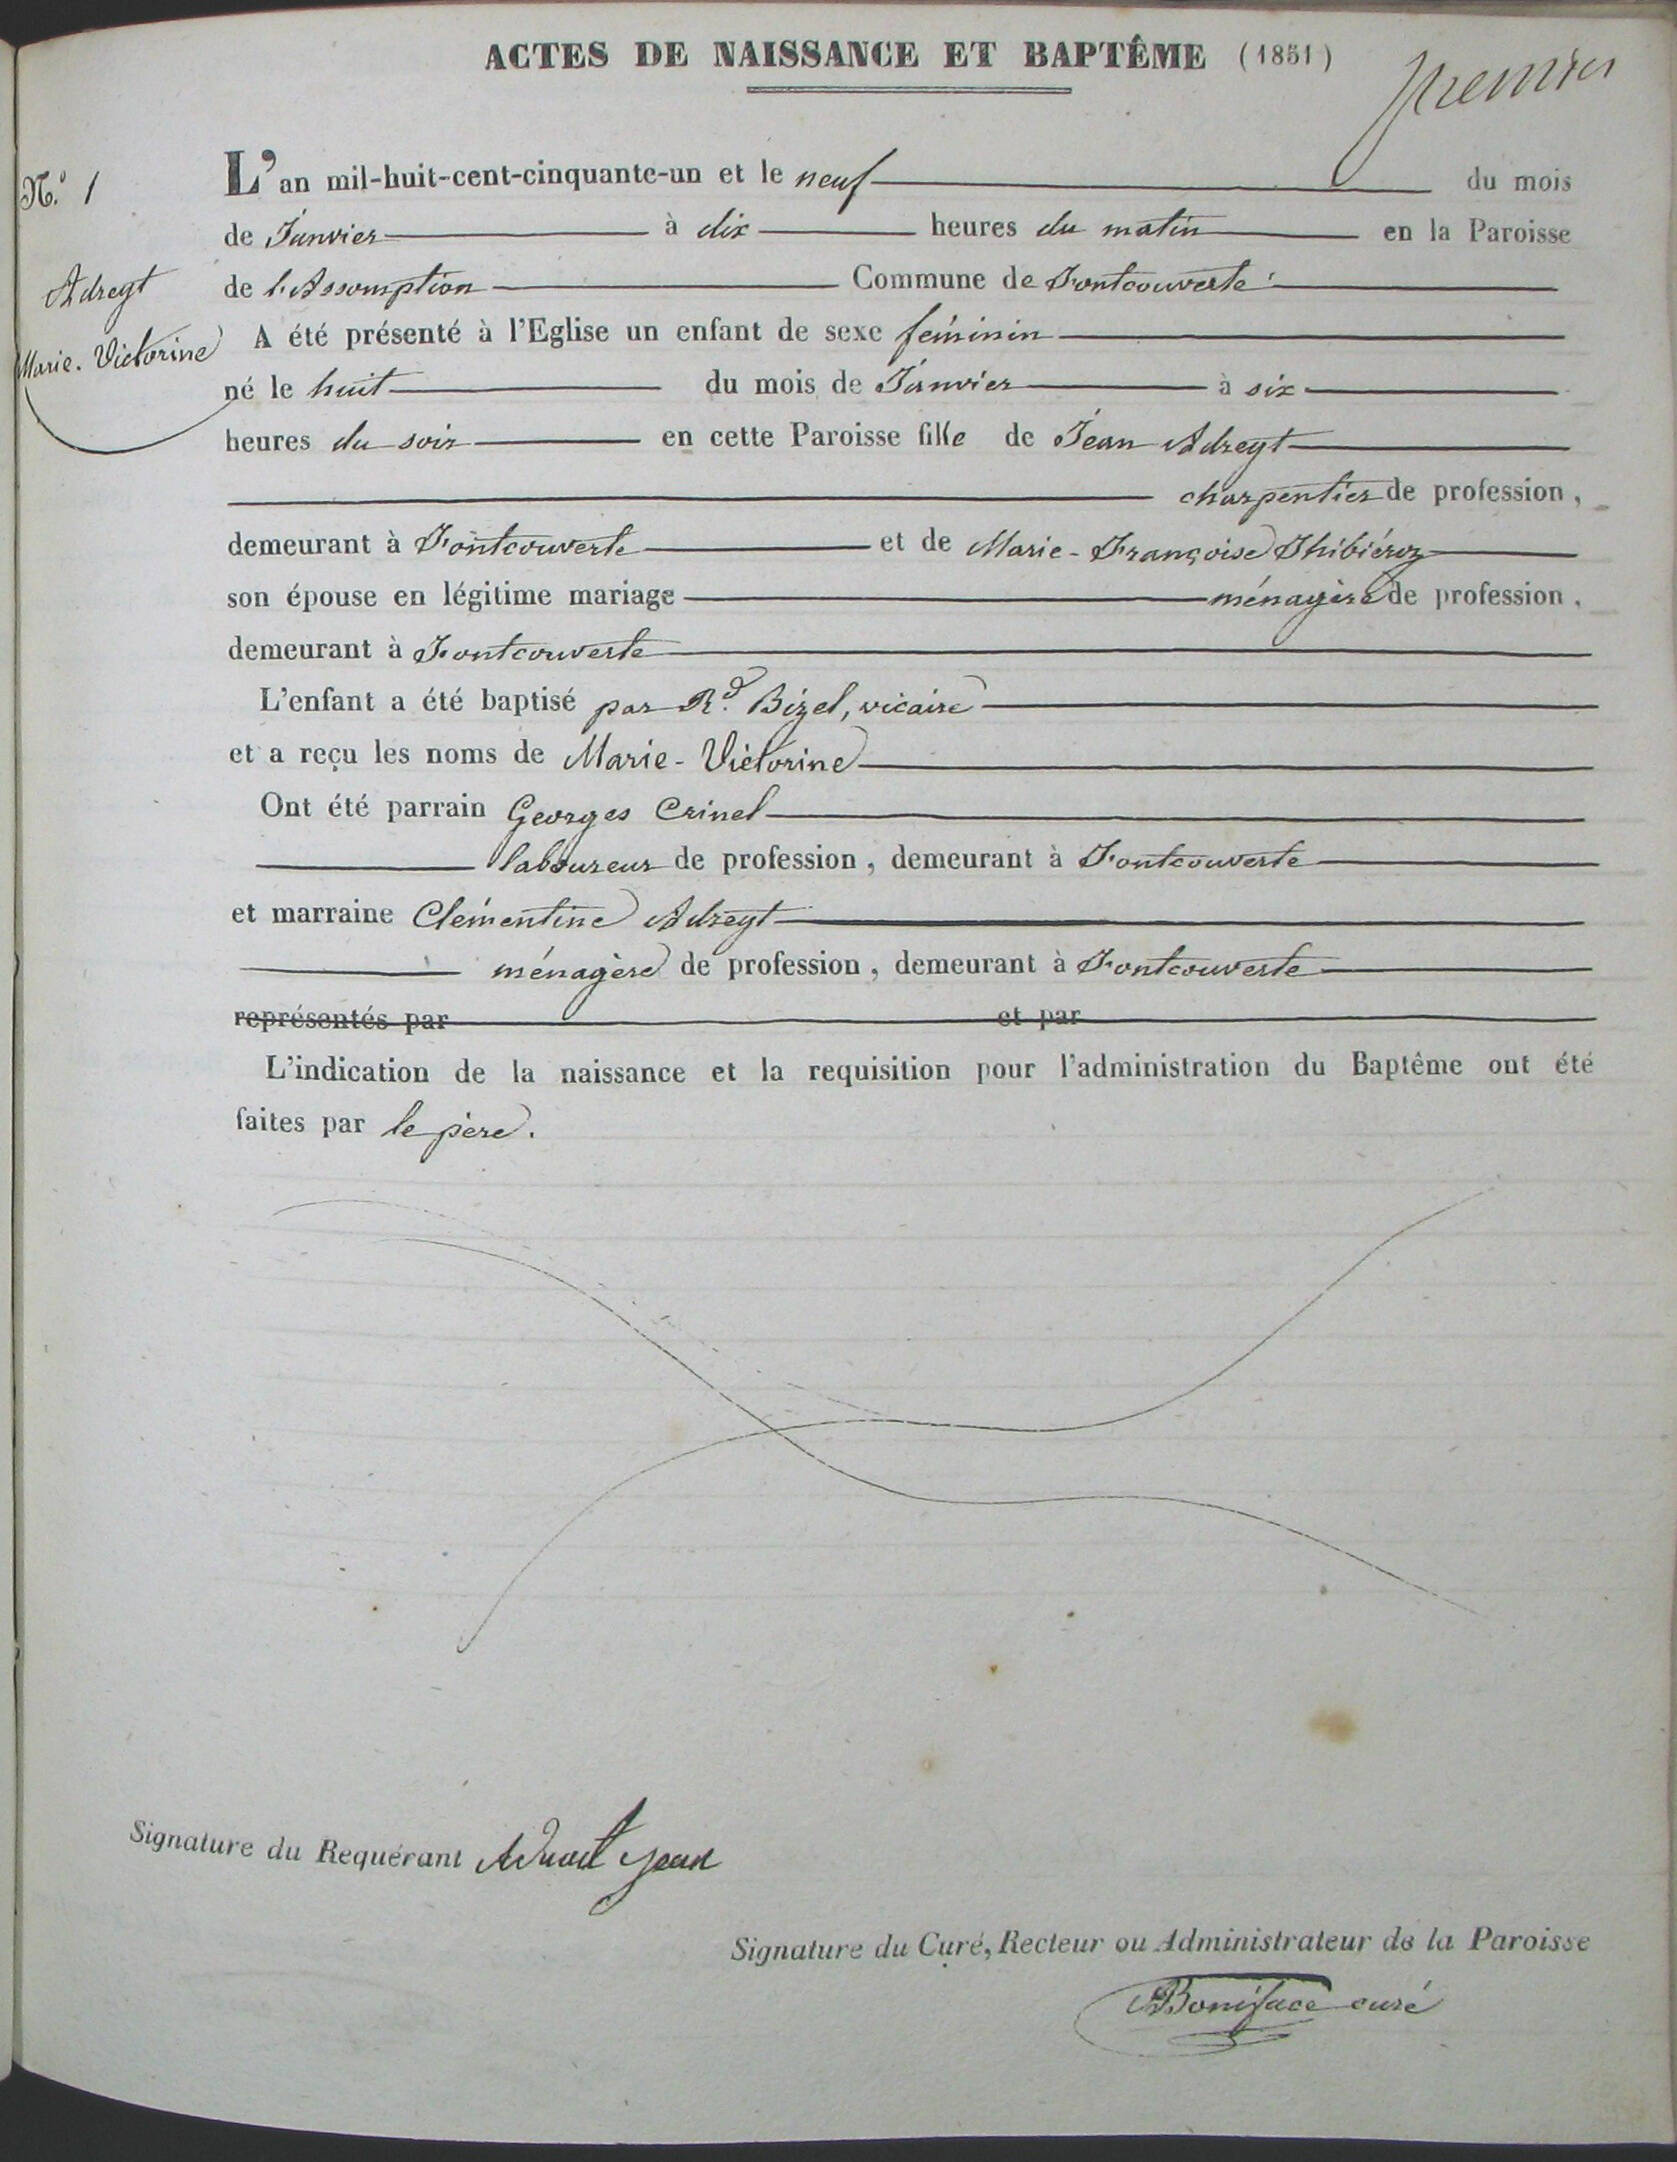 ACTES DE NAISSANCE ET BAPTÊME (1851)
premier
N.º 1
Adreyt
Marie-Victorine
L'an mil-huit-cent-cinquante-un et le neuf du mois
de Janvier à dix heures du matin en la Paroisse
de l'Assomption Commune de Fontcouverte
A été présenté à l'Eglise un enfant de sexe féminin
né le huit du mois de Janvier à six
heures du soir en cette Paroisse fille de Jean Adreyt
charpentier de profession,
demeurant à Fontcouverte et de Marie-Françoise Thibiéroz
son épouse en légitime mariage ménagère de profession,
demeurant à Fontcouverte
L'enfant a été baptisé par Rd. Bizel, vicaire
et a reçu les noms de Marie-Victorine
Ont été parrain Georges Crinel
laboureur de profession, demeurant à Fontcouverte
et marraine Clémentine Adreyt
ménagère de profession, demeurant à Fontcouverte
représentés par et par
L'indication de la naissance et la requisition pour l'administration du Baptême ont été
faites par le père.
Signature du Requérant Jean
Signature du Curé, Recteur ou Administrateur de la Paroisse
Boniface curé